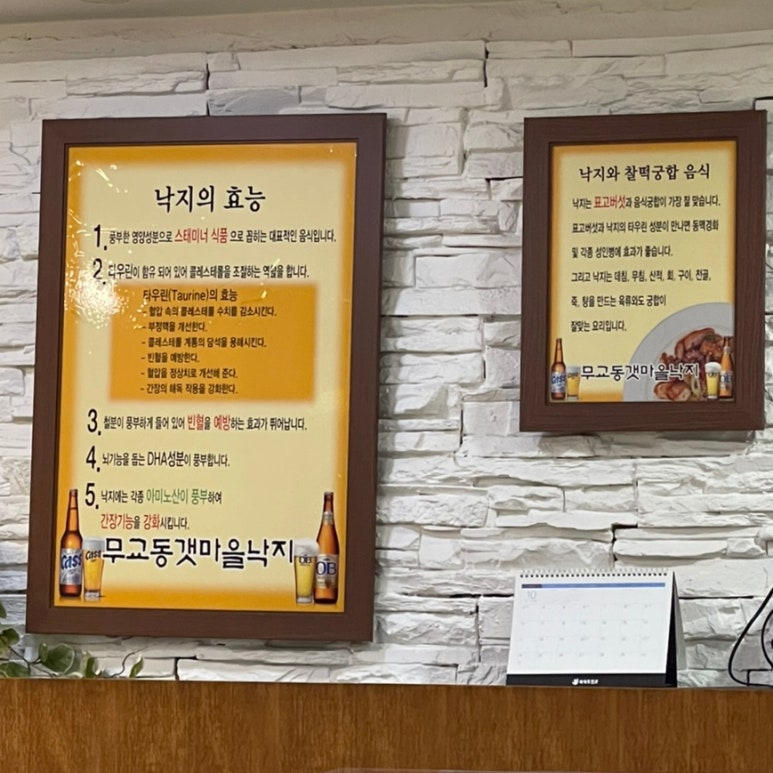 낙지의 효능
1. 풍부한 영양성분으로 스태미너 식품 으로 꼽히는 대표적인 음식입니다.
2. 타우린이 함유 되어 있어 콜레스테롤을 조절하는 역할을 합니다.
타우린(Taurine)의 효능
- 혈압 속의 콜레스테롤 수치를 감소시킨다.
- 부정맥을 개선한다.
- 콜레스테롤 계통의 담석을 용해시킨다.
- 빈혈을 예방한다.
- 혈압을 정상치로 개선해 준다.
- 간장의 해독 작용을 강화한다.
3. 철분이 풍부하게 들어 있어 빈혈을 예방하는 효과가 뛰어납니다.
4. 뇌기능을 돕는 DHA성분이 풍부합니다.
5. 낙지에는 각종 아미노산이 풍부하여
간장기능을 강화시킵니다.
Cass Cass 무교동갯마을낙지 OB OB
낙지와 찰떡궁합 음식
낙지는 표고버섯과 음식궁합이 가장 잘 맞습니다.
표고버섯과 낙지의 타우린 성분이 만나면 동맥경화
및 각종 성인병에 효과가 좋습니다.
그리고 낙지는 데침, 무침, 산적, 회, 구이, 전골,
죽, 탕을 만드는 육류와도 궁합이
잘맞는 요리입니다.
Cass 무교동갯마을낙지 OB
10